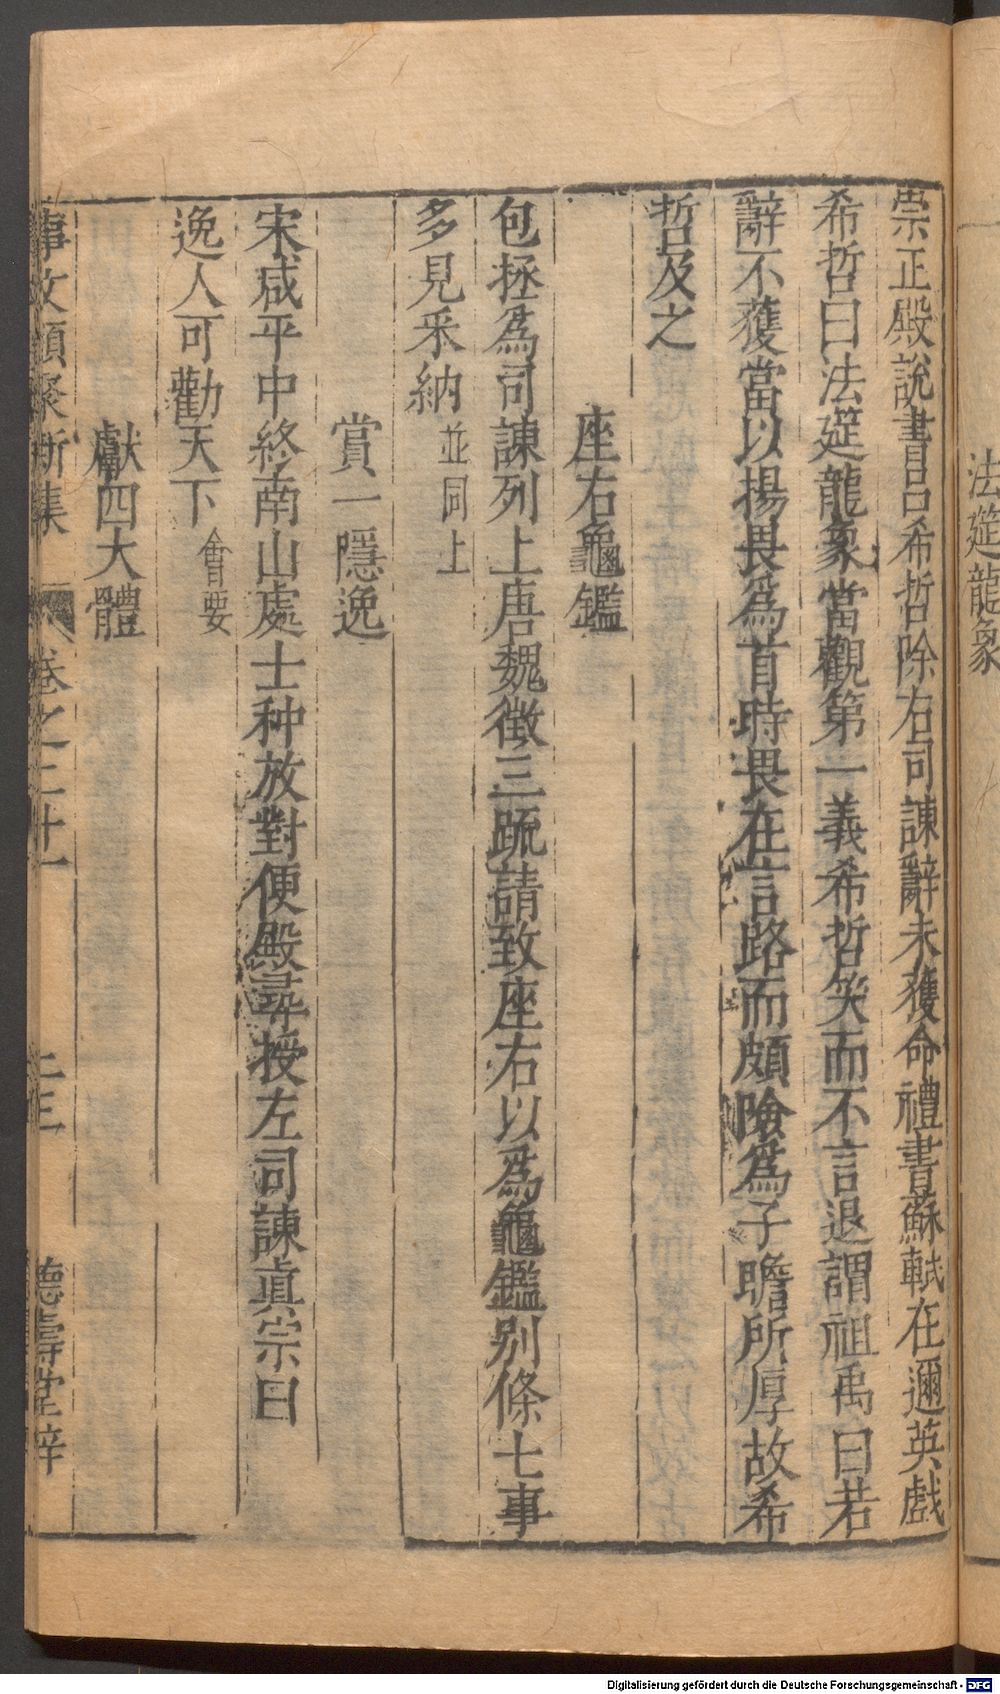 法筵龍象
崇正殿說書呂希哲除右司諫辭未獲命禮書蘇軾在邇英戲
希哲曰法筵龍象當觀第一義希哲笑而不言退謂祖禹曰若
辭不獲當以揚畏為首時畏在言路而頗險為子瞻所厚故希
哲及之
座右龜鑑
包拯為司諫列上唐魏徵三䟽請致座右以為龜鑑别條七事
多見采納並同上
賞一隱逸
宋咸平中終南山處士种放對便殿尋授左司諫眞宗曰
逸人可勸天下會要
獻四大體
事文類聚新集 卷之二十一 十三 德壽堂梓
Digitalisierung gefördert durch die Deutsche Forschungsgemeinschaft - DFG